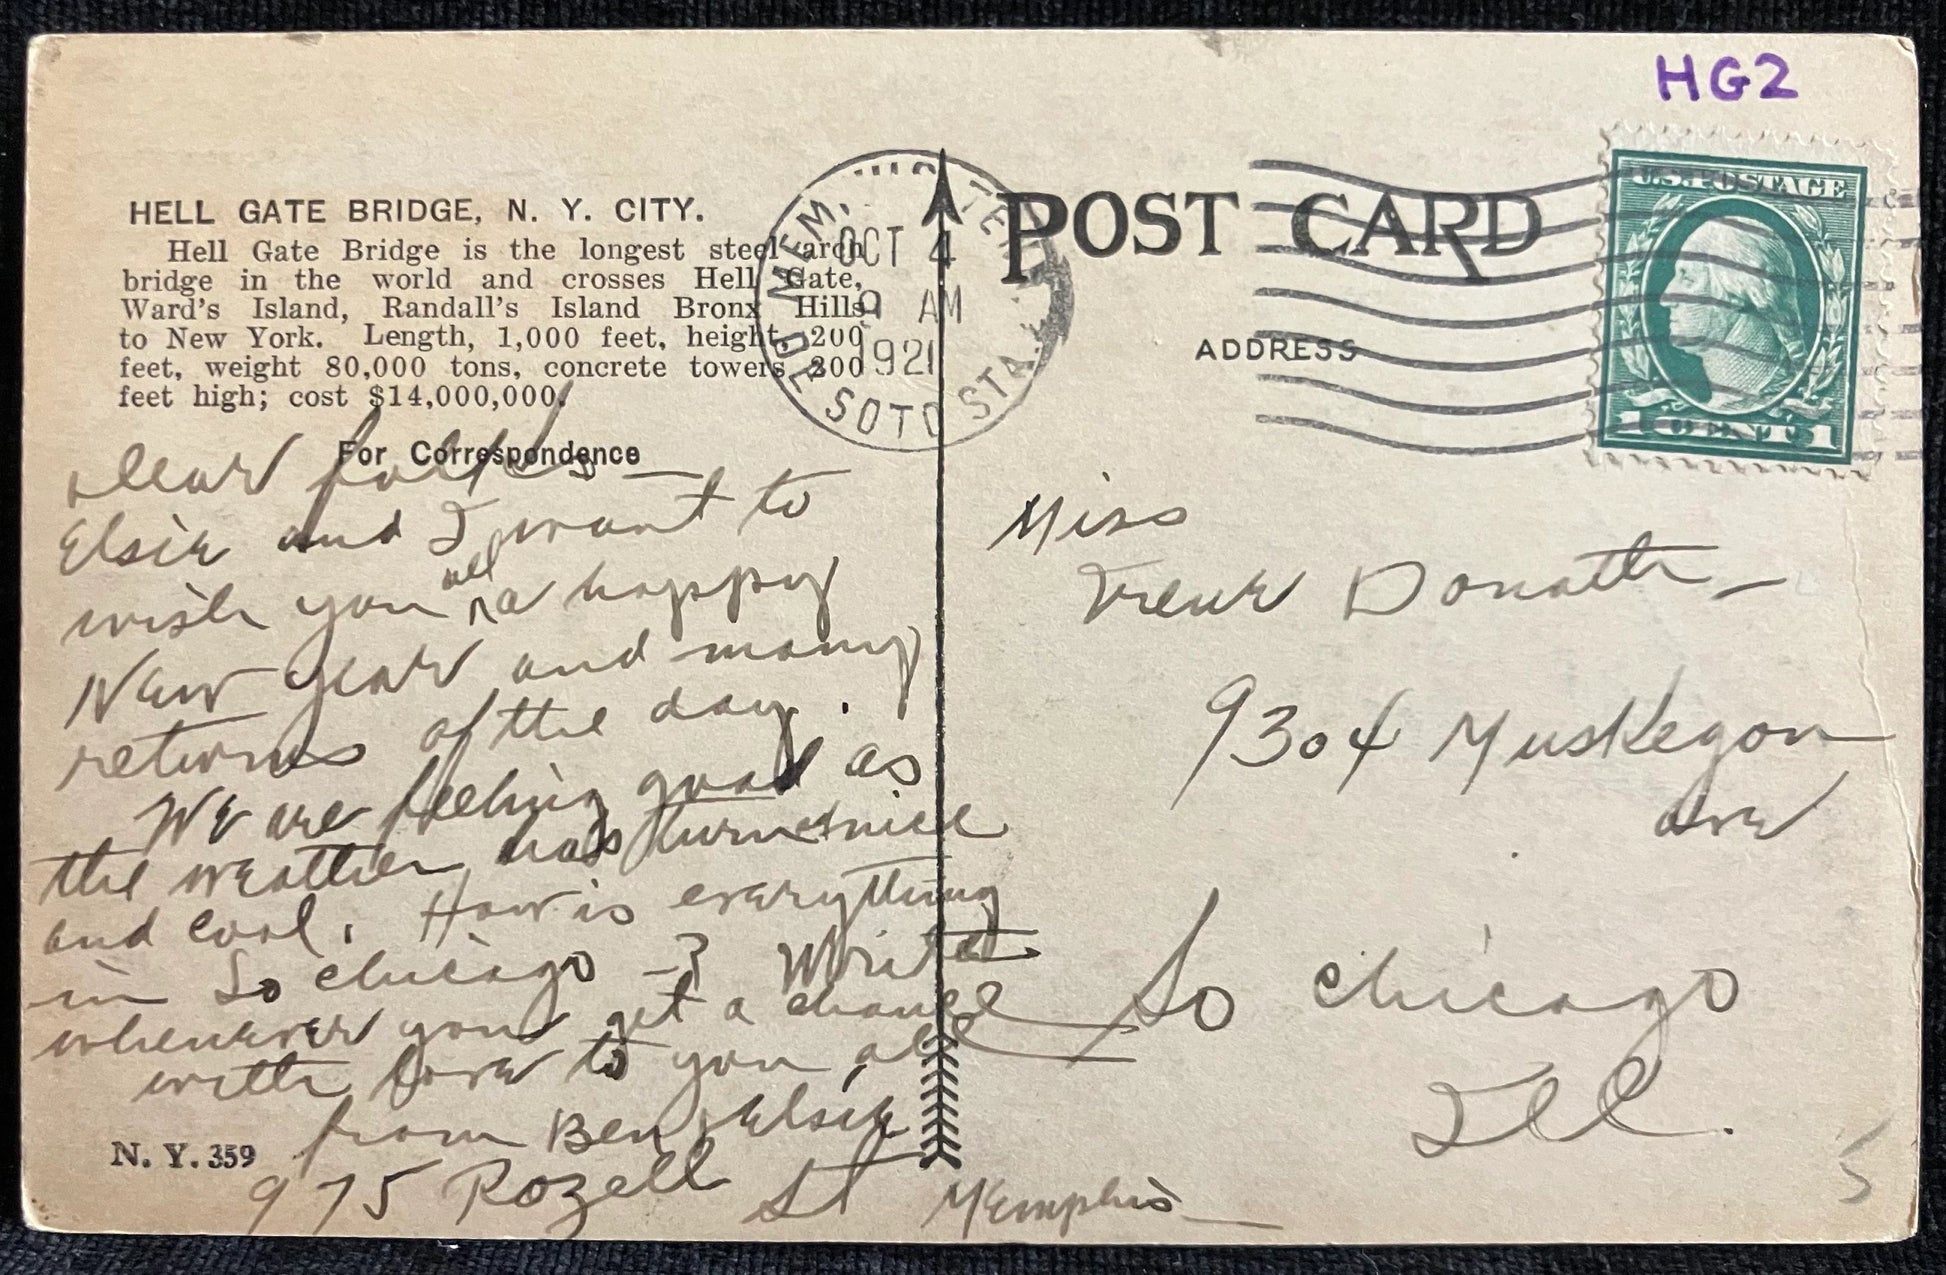 HG2
HELL GATE BRIDGE, N. Y. CITY.
Hell Gate Bridge is the longest steel arch
bridge in the world and crosses Hell Gate,
Ward's Island, Randall's Island Bronx Hills
to New York. Length, 1,000 feet, height, 200
feet, weight 80,000 tons, concrete towers 200
feet high; cost $14,000,000.
For Correspondence
Dear folks —
Elsie and I want to
wish you all a happy
New Year and many
returns of the day.
We are feeling good as
the weather has turned nice
and cool. How is everything
in So Chicago -? Write
whenever you get a chance
with love to you all
from Ben, Elsie
975 Rozell St Memphis
N. Y. 359
MEM. TEN
OCT 4
9 AM
1921
DE SOTO STA.
POST CARD
ADDRESS
U.S. POSTAGE
1 CENT 1
Miss
Irene Donath
9304 Muskegon
Ave
So Chicago
Ill.
5